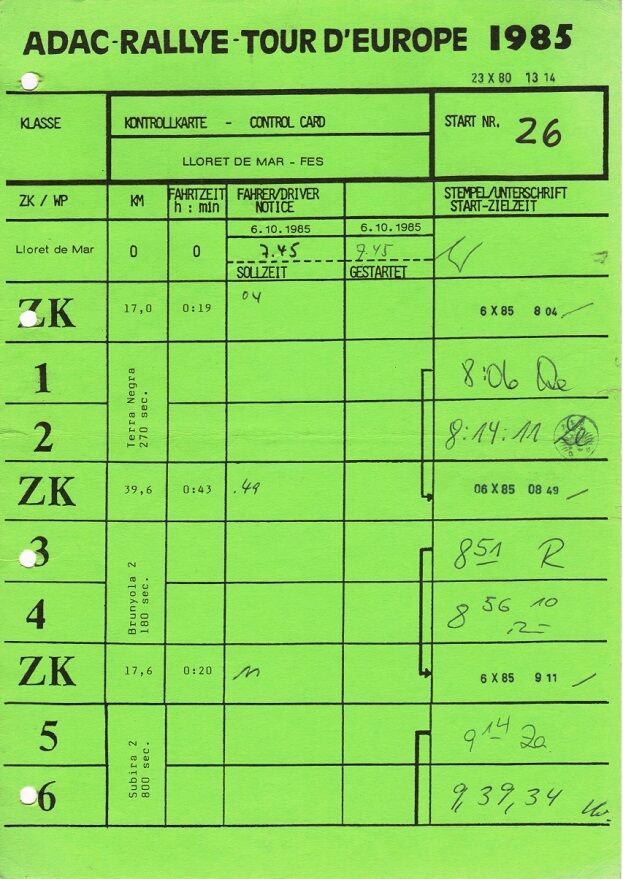 ADAC-RALLYE-TOUR D'EUROPE 1985
23 X 80 13 14
KLASSE
KONTROLLKARTE - CONTROL CARD
START NR. 26
LLORET DE MAR - FES
ZK / WP
KM
FAHRTZEIT
h : min
FAHRER/DRIVER
NOTICE
STEMPEL/UNTERSCHRIFT
START-ZIELZEIT
6.10.1985
6.10.1985
Lloret de Mar
0
0
7.45
7.45
SOLLZEIT
GESTARTET
ZK
17,0
0:19
04
6 X 85 8 04
1
8:06
Terra Negra
270 sec.
2
8:14:11
ZK
39,6
0:43
.49
06 X 85 08 49
3
8 51 R
Brunyola 2
180 sec.
4
8 56 10
ZK
17,6
0:20
11
6 X 85 9 11
5
9 14
Subira 2
800 sec.
6
9,39,34